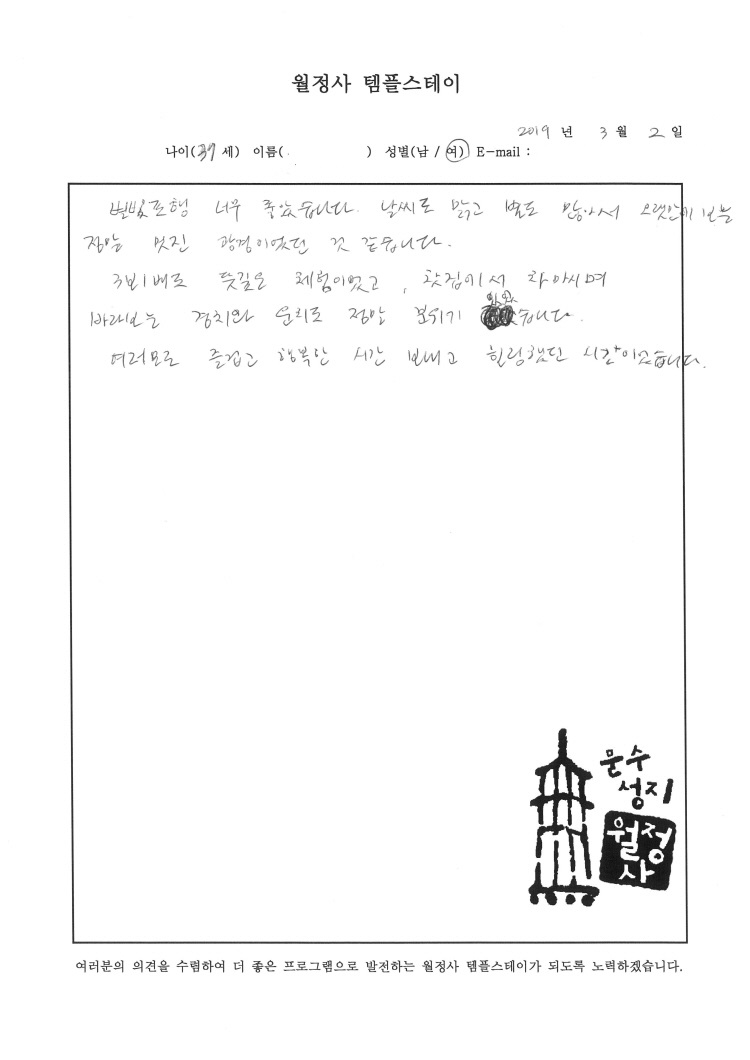 월정사 템플스테이
2019 년 3 월 2 일
나이(39 세) 이름( ) 성별(남 / 여) E-mail :
별빛포행 너무 좋았습니다. 날씨도 맑고 별도 많아서 오랫만에 보는
정말 멋진 광경이였던 것 같습니다.
3보1배도 뜻깊은 체험이었고, 찻집에서 차 마시며
바라보는 경치와 운치도 정말 분위기 있었습니다.
여러모로 즐겁고 행복한 시간 보내고 힐링했던 시간이였습니다.
문수
성지
월정
사
여러분의 의견을 수렴하여 더 좋은 프로그램으로 발전하는 월정사 템플스테이가 되도록 노력하겠습니다.